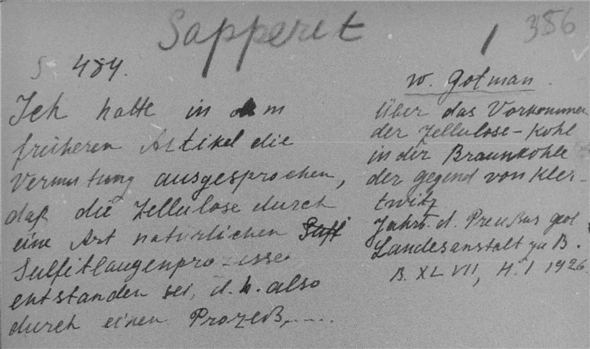 Sapperit
1 386
S 484.
Ich hatte in dem
früheren Artikel die
Vermutung ausgesprochen,
daß die Zellulose durch
eine Art natürlichen
Sulfitlaugenprozesse
entstanden sei, d.h. also
durch einen Prozeß,....
W. Gotman.
Über das Vorkommen
der Zellulose-Kohl
in der Braunkohle
der gegend von Kler-
twitz
Jahrb. d. Preußas geol
Landesanstalt zu B.
B. XLVII, H.1 1926